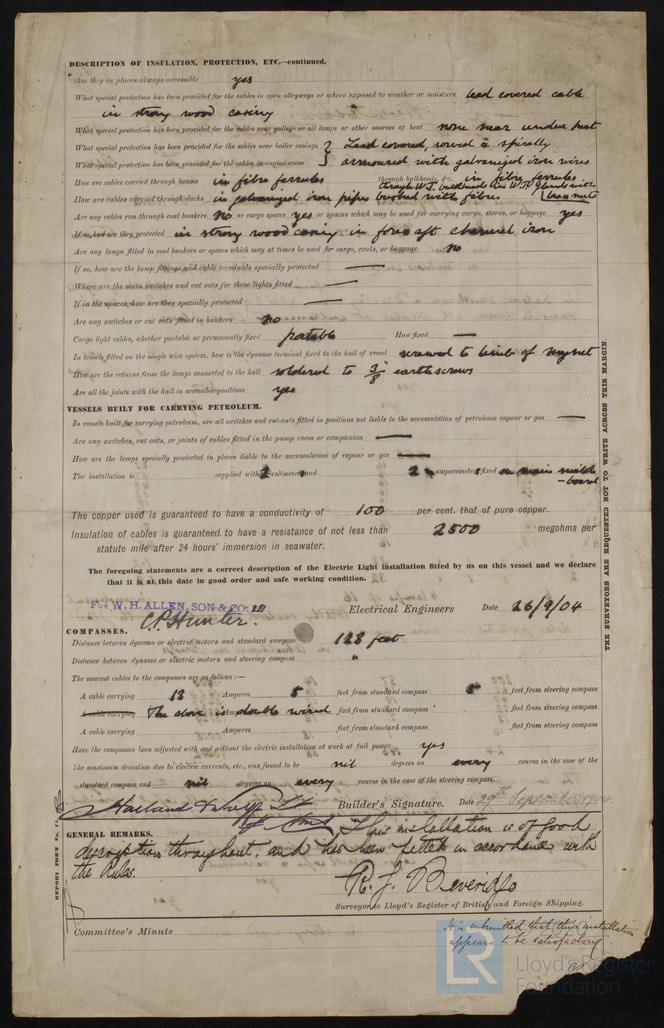 DESCRIPTION OF INSULATION, PROTECTION, ETC.—continued.
Are they in places always accessible yes
What special protection has been provided for the cables in open alleyways or where exposed to weather or moisture lead covered cable
in strong wood casing
What special protection has been provided for the cables near galleys or oil lamps or other sources of heat none near undue heat
What special protection has been provided for the cables near boiler casings } Lead covered, served & spirally
What special protection has been provided for the cables in engine room } armoured with galvanized iron wires
How are cables carried through beams in fibre ferrules through bulkheads, &c. in fibre ferrules
through W.T. bulkheads W.T. glands with
How are cables carried through decks in galvanized iron pipes bushed with fibre brass nuts
Are any cables run through coal bunkers No or cargo spaces yes or spaces which may be used for carrying cargo, stores, or baggage yes
If so, how are they protected in strong wood casing in fore & aft channel iron
Are any lamps fitted in coal bunkers or spaces which may at times be used for cargo, coals, or baggage no
If so, how are the lamp fittings and cable terminals specially protected —
Where are the main switches and cut outs for these lights fitted —
If in the spaces, how are they specially protected —
Are any switches or cut outs fitted in bunkers no
Cargo light cables, whether portable or permanently fixed portable How fixed —
In vessels fitted on the single wire system, how is the dynamo terminal fixed to the hull of vessel screwed to limb of magnet
How are the returns from the lamps connected to the hull soldered to 3/8" earth screws
Are all the joints with the hull in accessible positions yes
VESSELS BUILT FOR CARRYING PETROLEUM.
In vessels built for carrying petroleum, are all switches and cut-outs fitted in positions not liable to the accumulation of petroleum vapour or gas —
Are any switches, cut outs, or joints of cables fitted in the pump room or companion —
How are the lamps specially protected in places liable to the accumulation of vapour or gas —
The installation is supplied with 2 voltmeters and 2 amperemeters fixed on main switch
-board
The copper used is guaranteed to have a conductivity of 100 per cent. that of pure copper.
Insulation of cables is guaranteed to have a resistance of not less than 2500 megohms per
statute mile after 24 hours' immersion in seawater.
The foregoing statements are a correct description of the Electric Light installation fitted by us on this vessel and we declare
that it is at this date in good order and safe working condition.
FOR W. H. ALLEN, SON & CO.
C.P. Hunter. Electrical Engineers Date 26/9/04
COMPASSES.
Distance between dynamo or electric motors and standard compass 128 feet
Distance between dynamo or electric motors and steering compass "
The nearest cables to the compasses are as follows:—
A cable carrying 13 Amperes 5 feet from standard compass 5 feet from steering compass
A cable carrying The above is double wired Amperes feet from standard compass feet from steering compass
A cable carrying Amperes feet from standard compass feet from steering compass
Have the compasses been adjusted with and without the electric installation at work at full power yes
The maximum deviation due to electric currents, etc., was found to be nil degrees on every course in the case of the
standard compass and nil degrees on every course in the case of the steering compass.
Harland & Wolff Ltd Builder's Signature. Date 29th September 1904
GENERAL REMARKS. This installation is of good
description throughout, and has been fitted in accordance with
the Rules.
R. J. Beveridge
Surveyor to Lloyd's Register of British and Foreign Shipping.
Committee's Minute
It is submitted that this installation
appears to be satisfactory
THE SURVEYORS ARE REQUESTED NOT TO WRITE ACROSS THIS MARGIN.
REPORT FORM No.
LR
Lloyd's Register
Foundation